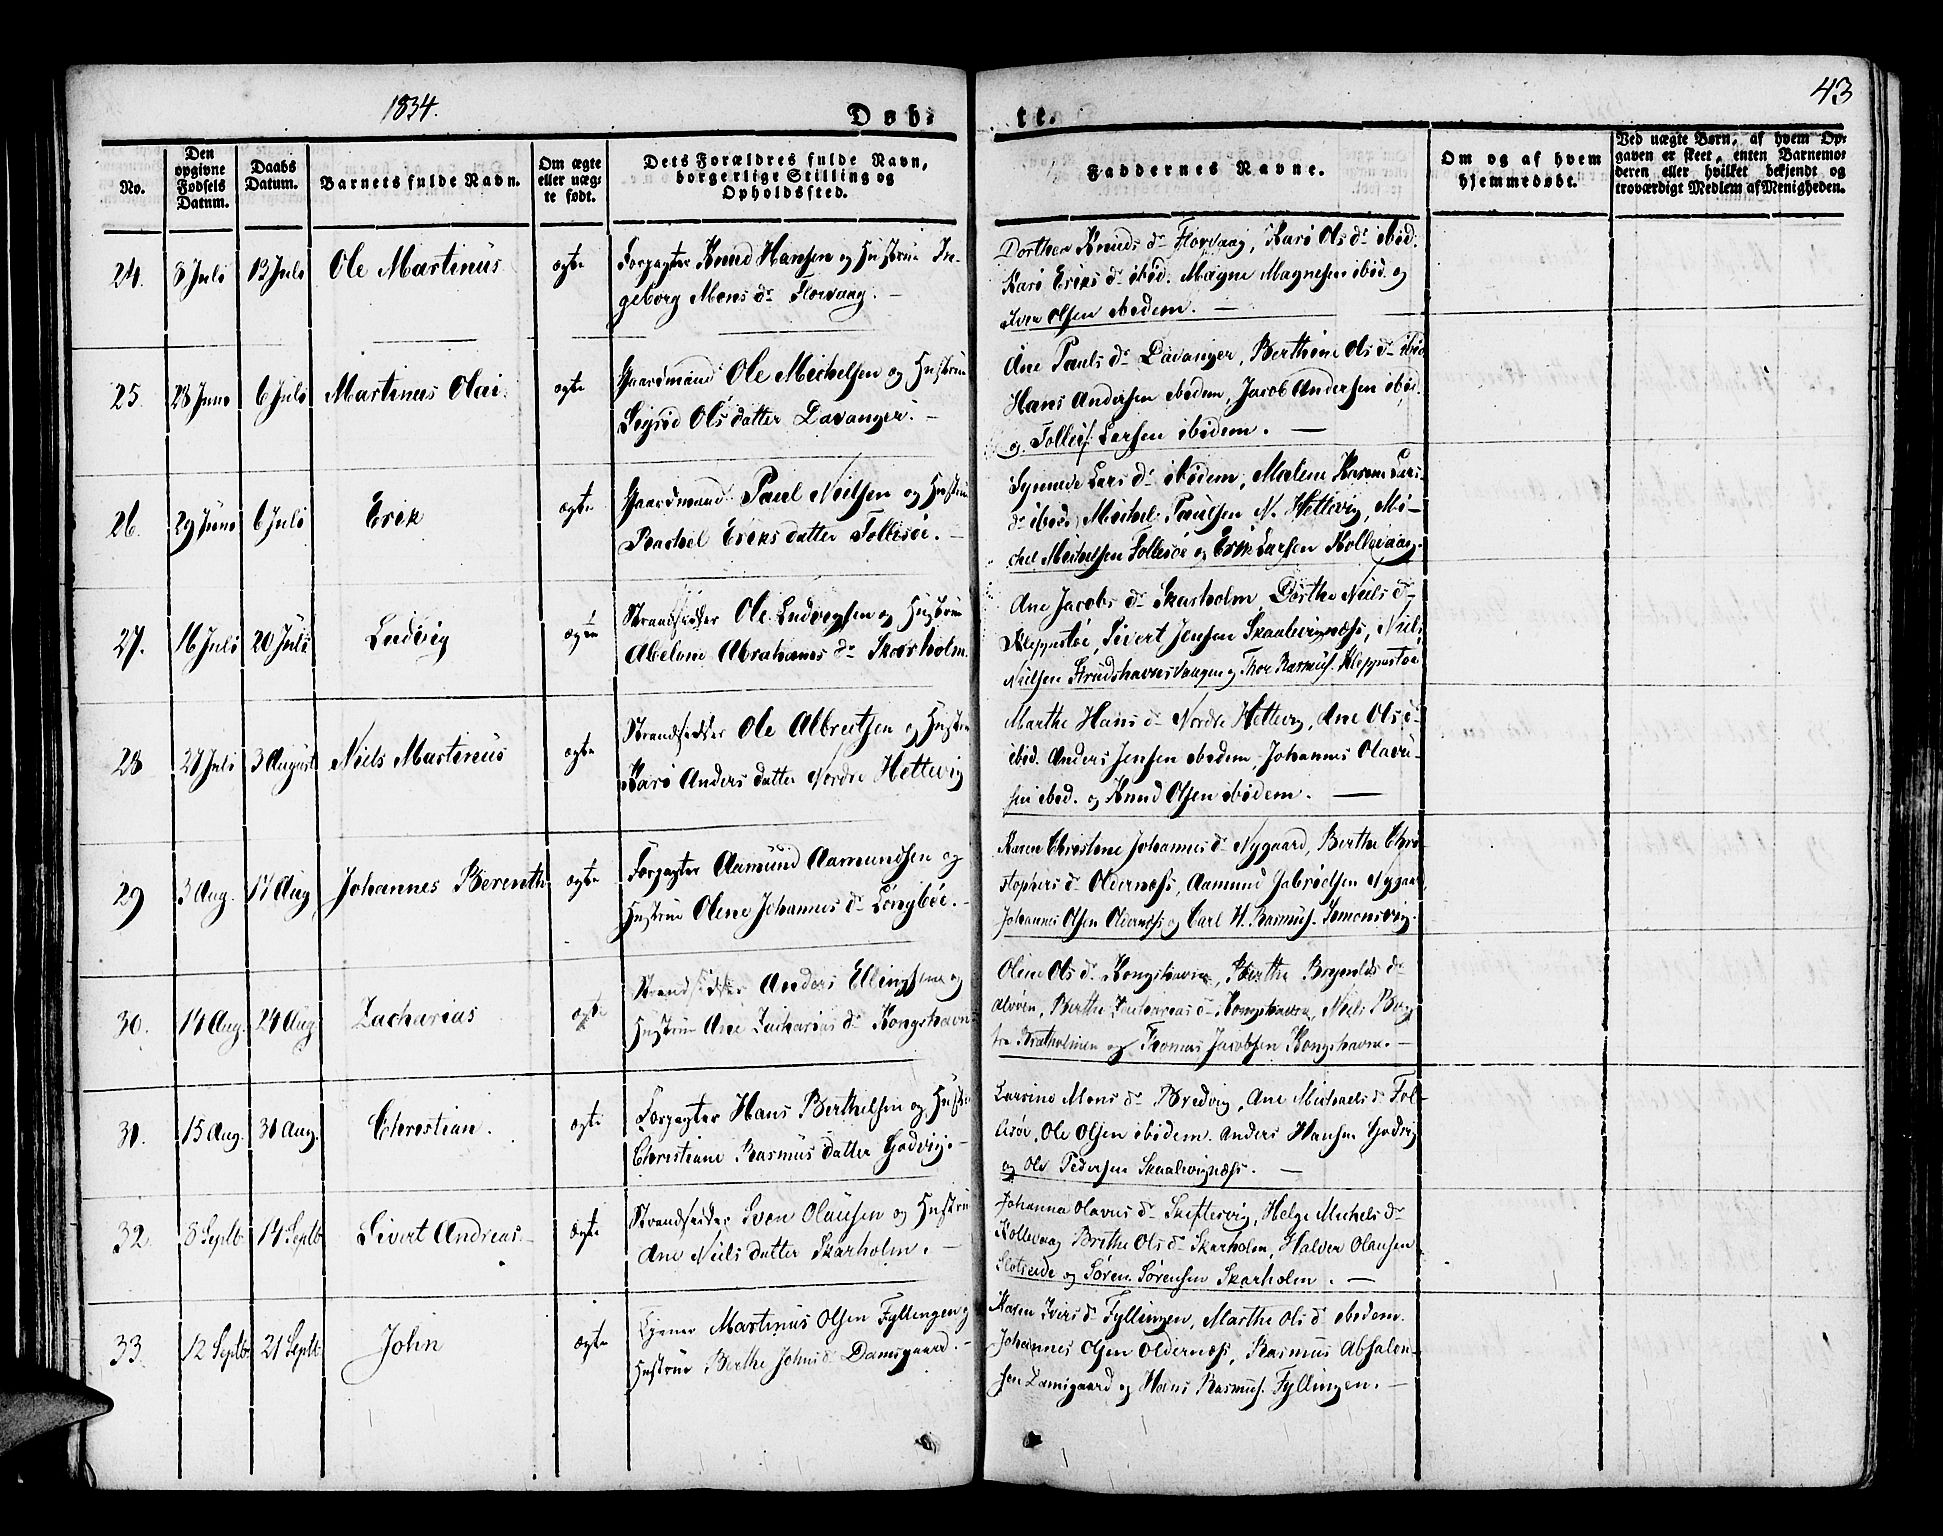 1834.
43
Døb-
te.
No.
Den opgivne Fødsels Datum.
Daabs Datum.
Barnets fulde Navn.
Om ægte eller uægte født.
Dets Forældres fulde Navn, borgerlige Stilling og Opholdssted.
Faddernes Navne.
Om og af hvem hjemmedøbt.
Ved uægte Børn, af hvem Opgaven er skeet, enten Barnemoderen eller hvilket bekjendt og troværdigt Medlem af Menigheden.
24. 8 Juli 12 Juli Ole Martinus ægte
Forpagter Knud Hansen og Hustrue In-
geborg Mons dr Florvaag. —
Dorthea Knuds dr Florvaag, Kari Ols dr ibid.
Kari Eriks dr ibid. Magne Magnesen ibid. og
Iver Olsen ibidem. —
25. 28 Juni 6 Juli Martinus Olai ægte
Gaardmand Ole Michelsen og Hustrue
Sigrid Ols datter Davanger. —
Ane Pauls dr Davanger, Berthine Ols dr ibid
Hans Andersen ibidem, Jacob Andersen ibid.
og Tolleif Larsen ibidem. —
26. 29 Juni 6 Juli Erik ægte
Gaardmand Paul Nielsen og Hustrue
Rachel Eriks datter Follesøe. —
Synnede Lars dr ibidem, Malene Karene Lars
dr ibid, Michel Paulsen N. Hettevig, Mi-
chel Michelsen Follesøe og Erik Larsen Kollevaag.
27. 16 Juli 20 Juli Ludvig ægte
Strandsidder Ole Ludvigsen og Hustrue
Abelone Abrahams dr Skarholm.
Ane Jacobs dr Skarholm, Dorthe Niels dr
Kleppestøe, Sivert Jensen Skaalevignæss, Niels
Nielsen Strudshavnsvaagen og Thor Rasmus. Kleppestøe
28 27 Juli 3 August Niels Martinus ægte
Strandsidder Ole Albretsen og Hustrue
Kari Anders datter Nordre Hettevig
Marthe Hans dr Nordre Hettevig, Ane Ols dr
ibid. Anders Jensen ibidem, Johannes Olavi-
sen ibid. og Knud Olsen ibidem. —
29 3 Aug. 17 Aug Johannes Berenth ægte
Forpagter Aamund Aamundsen og
Hustrue Olene Johannes dr Lyngbøe. —
Karen Christine Johannes dr Nygaard, Berthe Chri-
stophers dr Oldernæss, Aamund Gabrielsen Nygaard
Johannes Olsen Oldernæss og Carl H. Rasmus. Simonsvig.
30. 14 Aug. 24 Aug Zacharias ægte
Strandsidder Anders Ellingsen og
Hustrue Ane Zacharias dr Kongshavn
Olene Ols dr Kongshavn, Berthe Brynilds dr
Alvøen, Berthe Zacharias dr Kongshavn, Niels
Bratholmen og Thomas Jacobsen Kongshavne. —
31. 15 Aug. 30 Aug. Christian. ægte
Forpagter Hans Berthelsen og Hustrue
Christiane Rasmus datter Godvig. —
Larsine Mons dr Bredvig, Ane Michaels dr Fol-
lesøe, Ole Olsen ibidem. Anders Hansen Godvig
og Ole Pedersen Skaalevignæss. —
32 8 Septb. 14 Septb Sivert Andreas. ægte
Strandsidder Sven Olausen og Hustrue
Ane Niels datter Skarholm. —
Johanna Olavus dr Skiftesvig, Helge Michels dr
Kollevaag Brithe Ols dr Skarholm, Halvor Olausen
og Søren Sørensen Skarholm. —
33. 12 Septb. 21 Septb. John ægte
Martinus Olsen Fyllingen og
Hustrue Berthe Johns dr Damsgaard. —
Maren Ivers dr Fyllingen, Marthe Ols dr ibidem.
Johannes Olsen Oldernæss, Rasmus Absalon-
sen Damsgaard og Hans Rasmus. Fyllingen. —